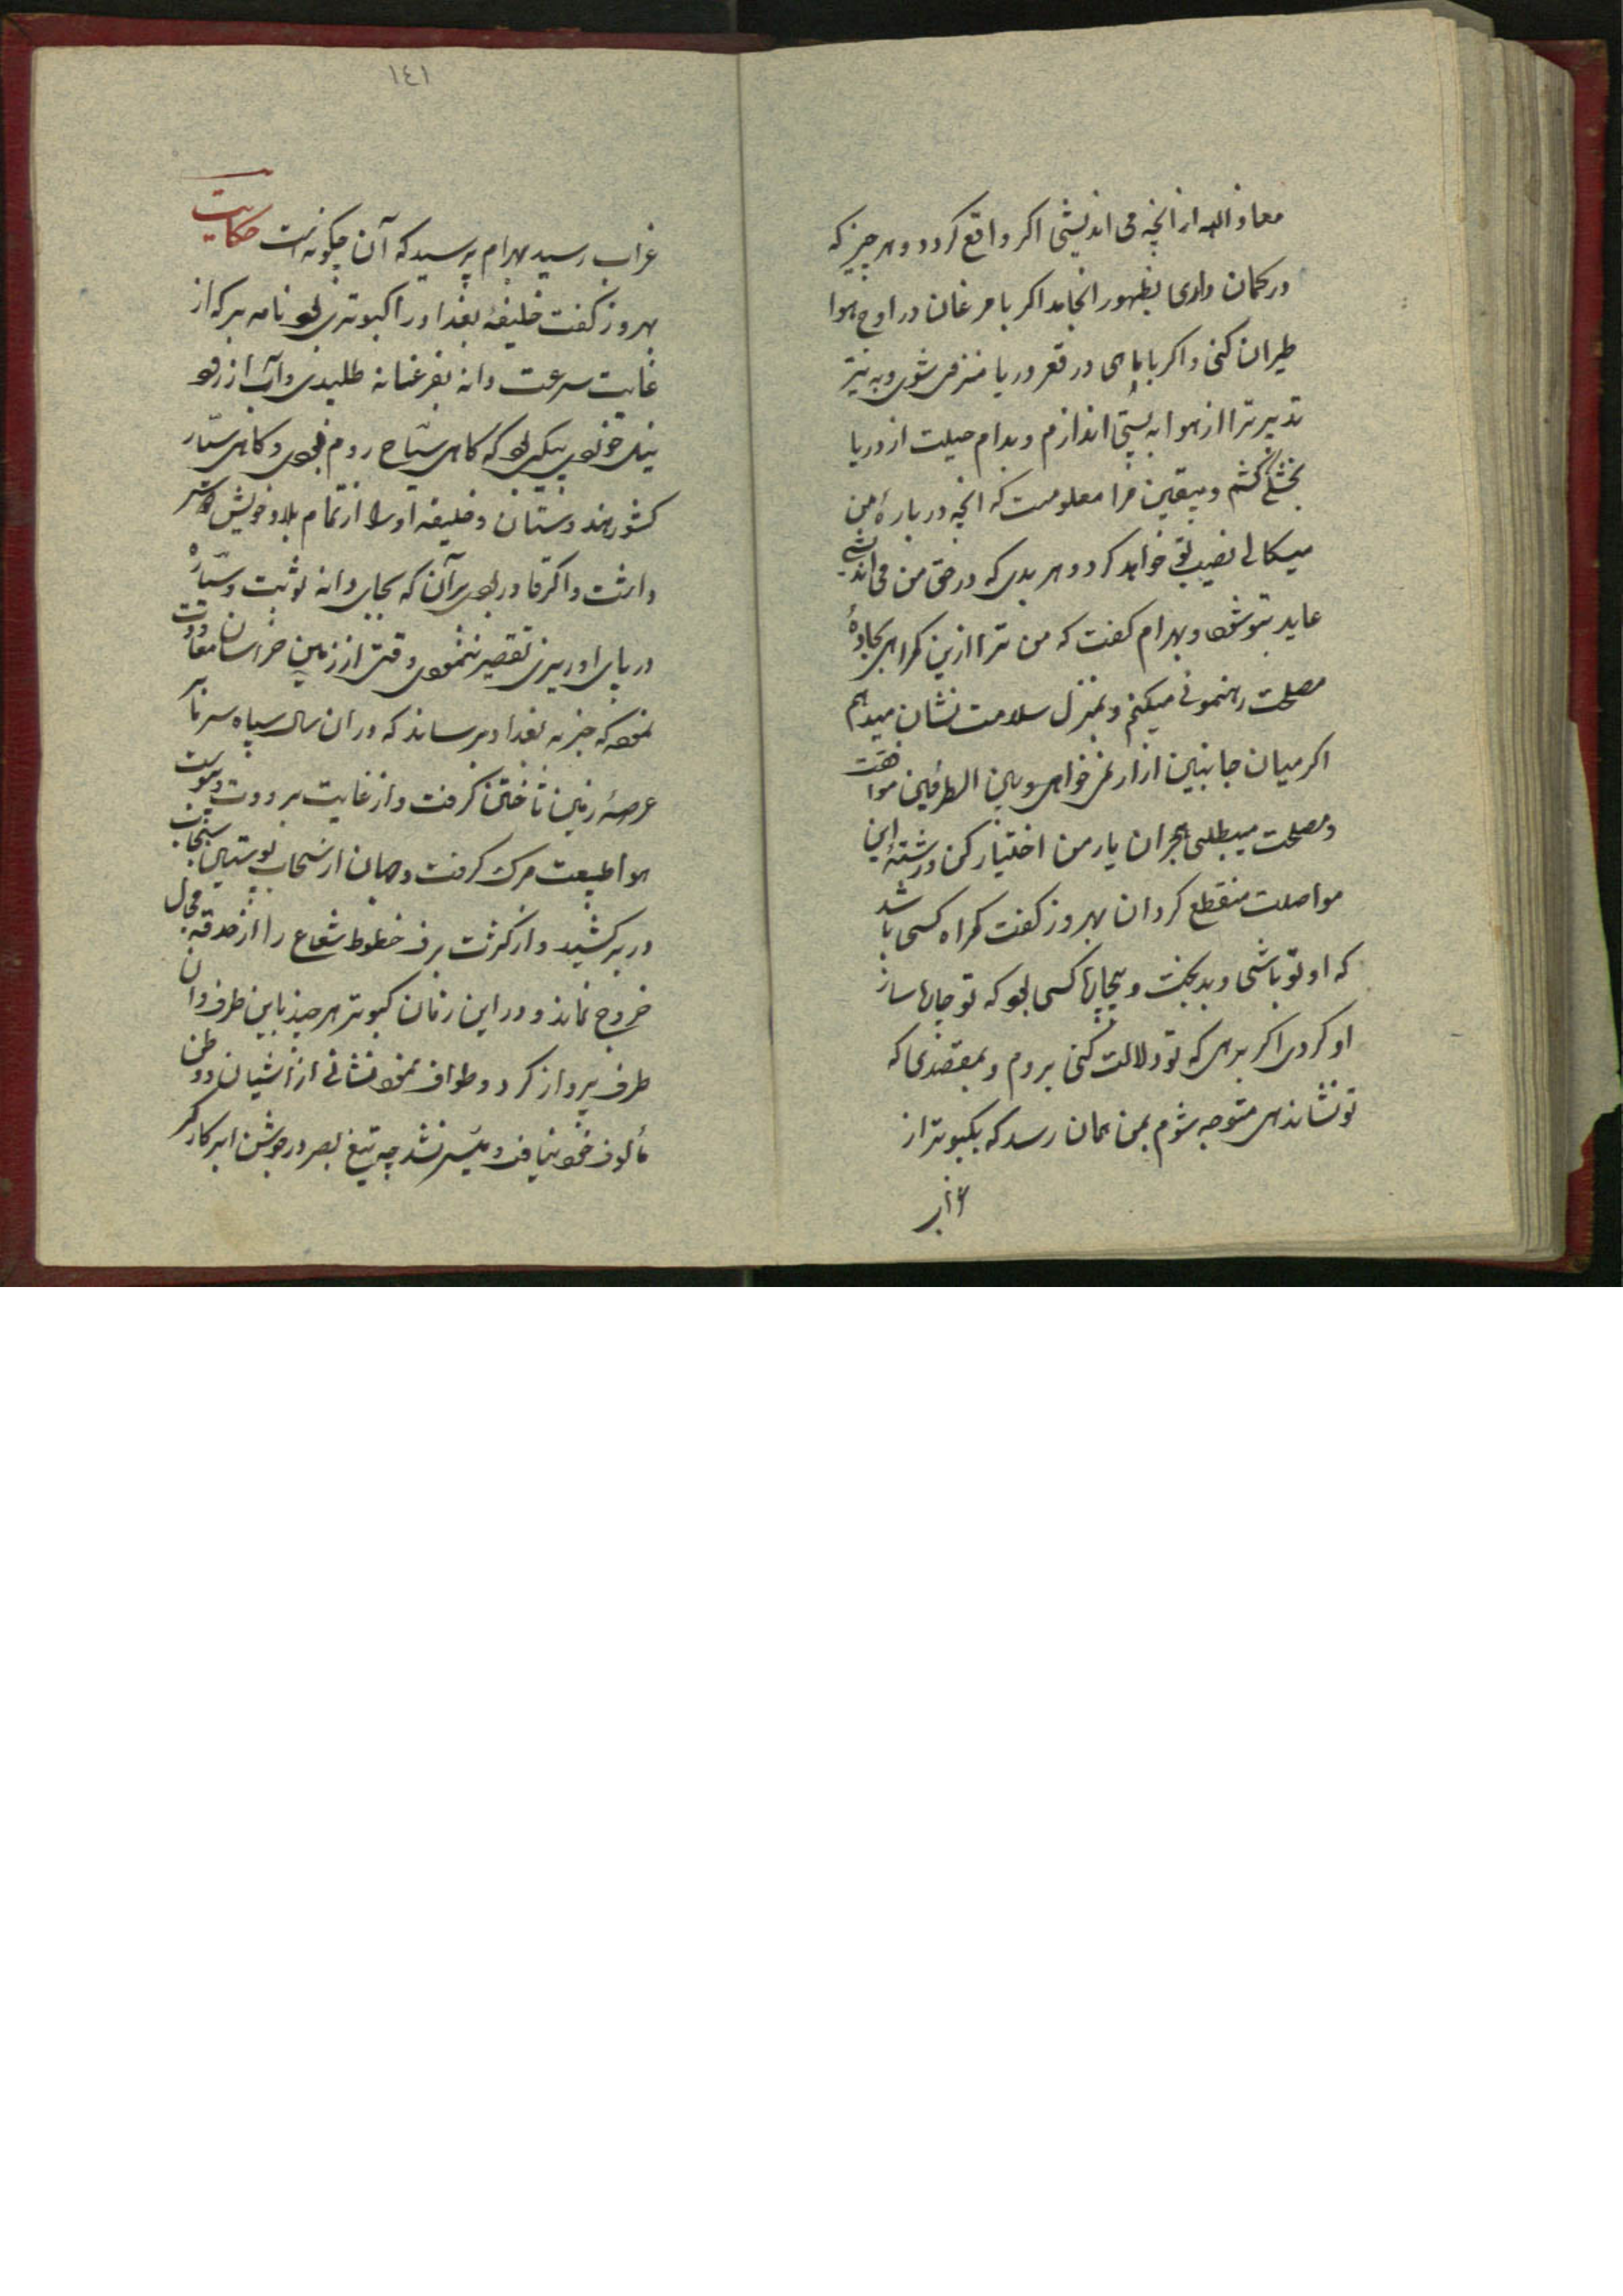 معاذ الله از انچه می اندیشی اکر واقع کردد و هر چیز که
در کمان داری بظهور انجامد اکر با مرغان در اوج هوا
طیران کنی و اکر با ماهی در قعر دریا منزوی شوی به تیر
تدبیر ترا از هوا به پستی اندازم و بدام حیلت از دریا
بخشکی کشم و بیقین مرا معلومست که انچه در بارهٔ من
میسکالی نصیب تو خواهد کرد و هر بدی که در حق من می اندیشی
عاید بتو شود بهرام کفت که من ترا ازین کمراهی بجادهٔ
مصلحت رهنمونی میکنم و بمنزل سلامت نشان میدهم
اکر میان جانبین ازار نمی خواهی و بین الطرفین موافقت
و مصلحت میطلبی هجران یار من اختیار کن و رشتهٔ این
مواصلت منقطع کردان بهروز کفت کمراه کسی باشد
که او تو باشی و بدبخت و بیچاره کسی بود که تو چاره ساز
او کردی اکر برهی که تو دلالت کنی بروم و بمقصدی که
تو نشاندهی متوجه شوم بمن همان رسد که بکبوتر از
۱۴۱
غراب رسید بهرام پرسید که آن چکونه است حکایت
بهروز کفت خلیفهٔ بغداد را کبوتری بود نامه بر که از
غایت سرعت دانه بفرغانه طلبیدی و آب از رود
نیل خوردی پیکی بود که کاهی سیّاح روم بودی و کاهی سیّار
کشور هندوستان و خلیفه او را از تمام بلاد خویش
داشت و اکر قادر بودی بر آن که بجای دانه ثوابت و سیّاره
در پای او ریزی تقصیر ننمودی وقتی از زمین خراسان معاودت
نمود که خبر به بغداد برساند که در ان سال سپاه سرما بر
عرصهٔ زمین تاختن کرفت و از غایت برودت و یبوست
هوا طبیعت مرک کرفت و جهان از سحاب پوستین سنجاب
در بر کشید و از کثرت برف خطوط شعاع را از حدقه مجال
خروج نماند و در این زمان کبوتر هر چند باین طرف و ان
طرف پرواز کرد و طواف نمود نشانی از اشیان و وطن
مألوف خود نیافت و میسر نشد چه تیغ بصر در جوشن ابر کارکر